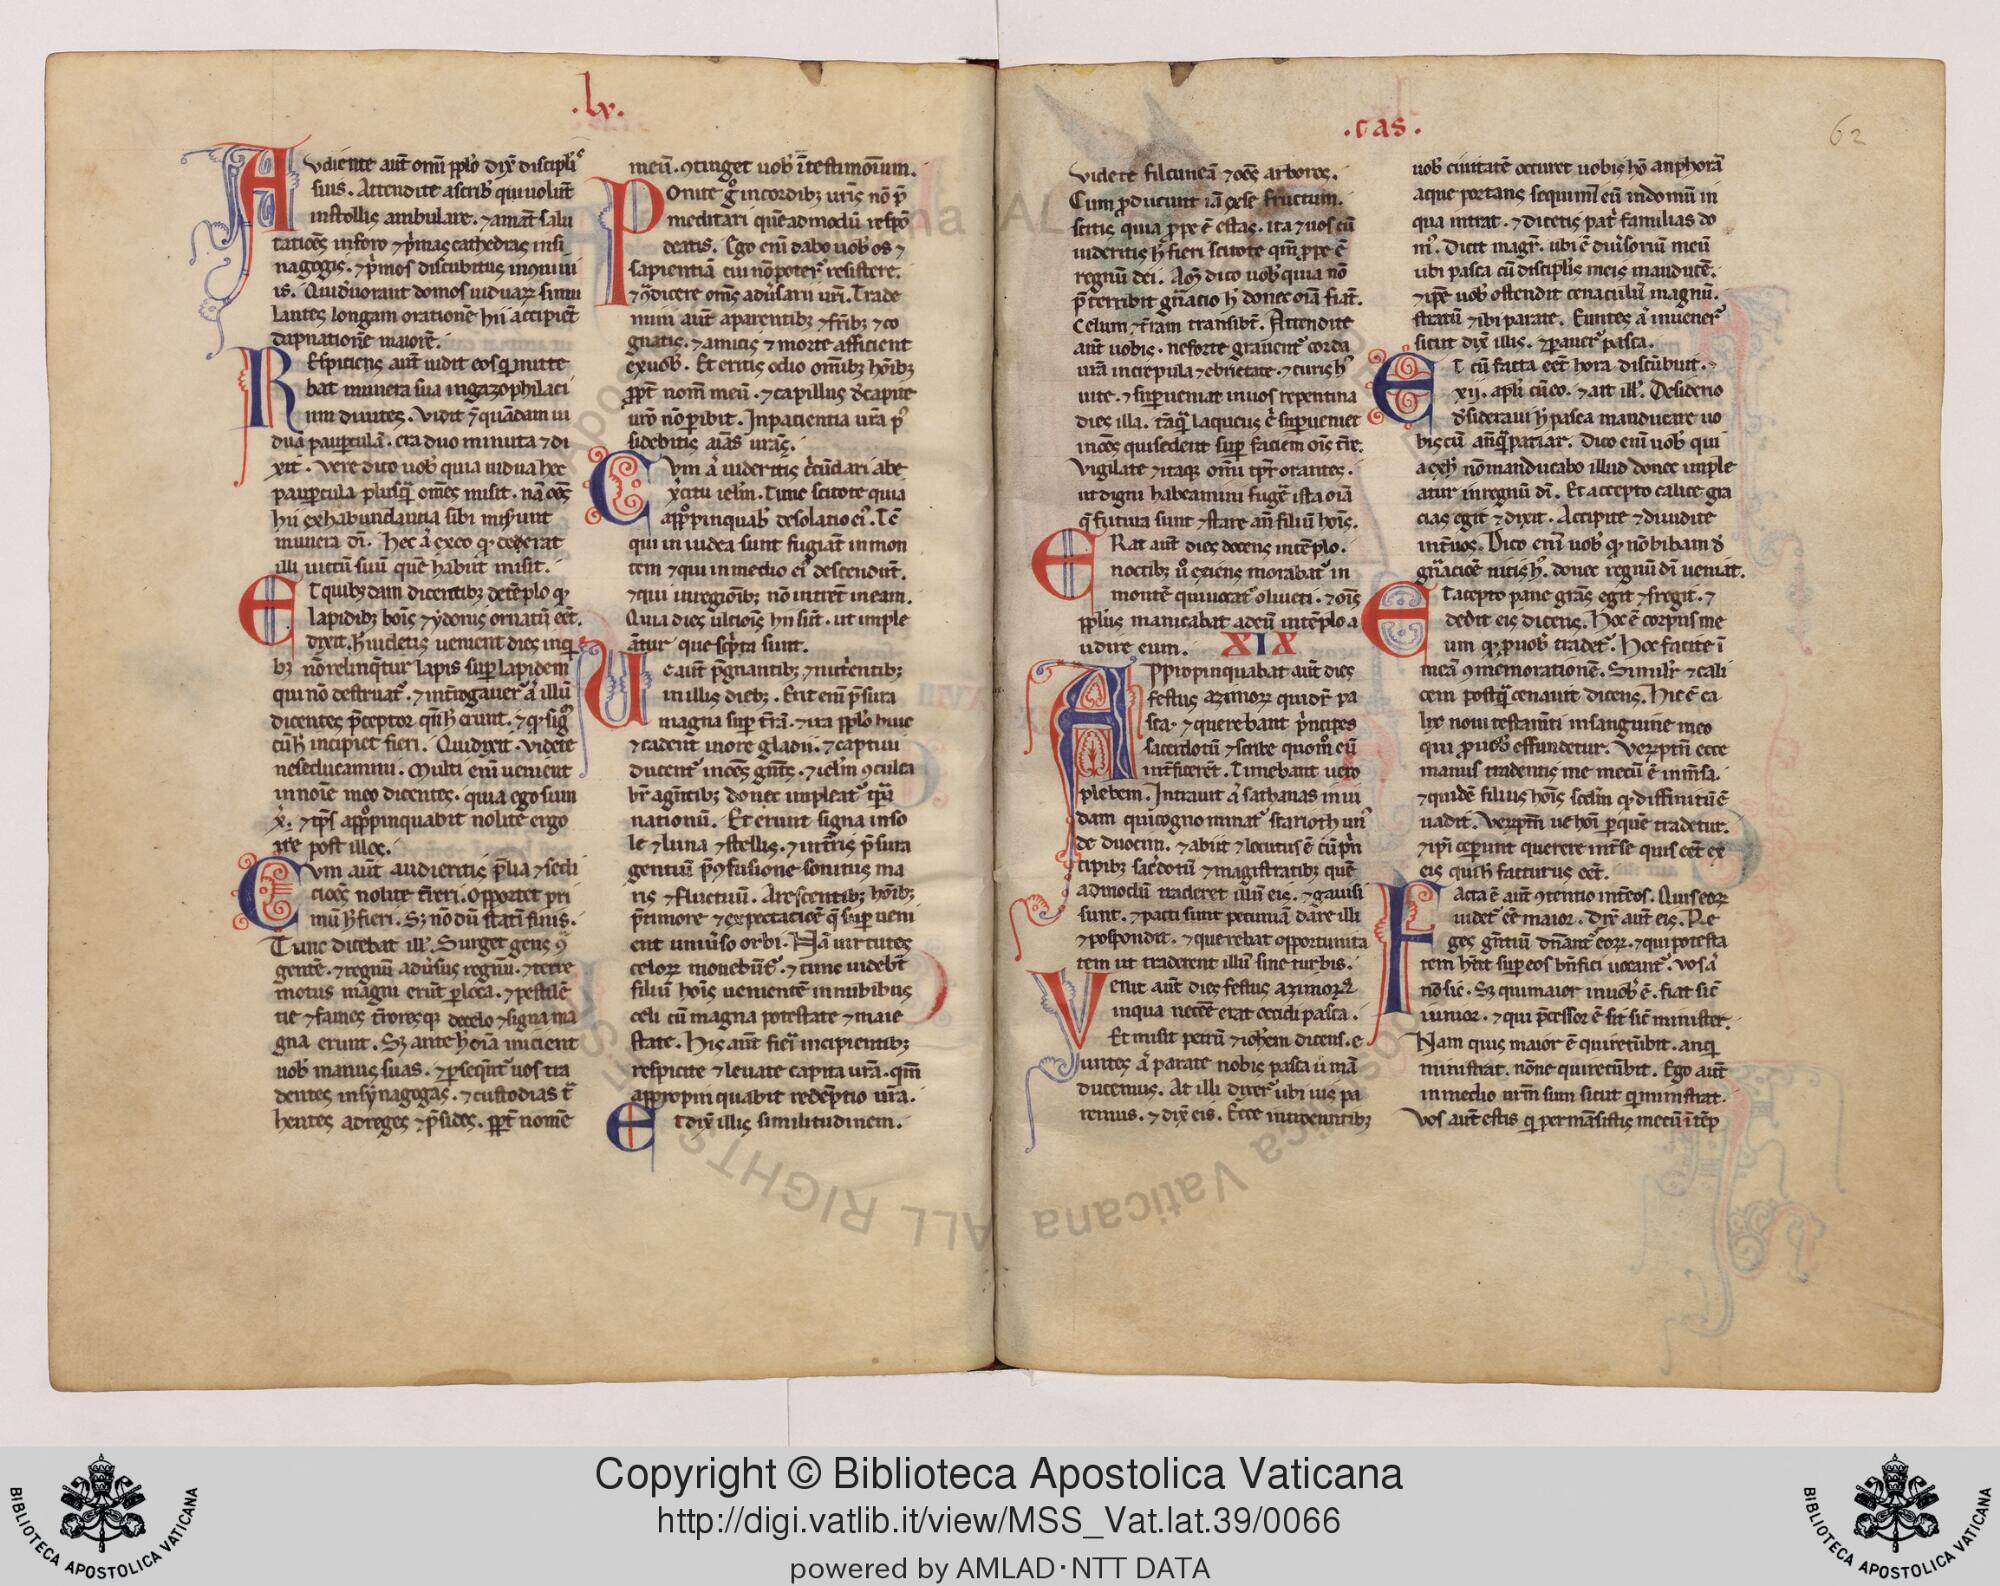 .lv.
Audiente aut̄ om̄i pp̄lo dix̄ discipl̕is
suis. Attendite a scrib̕ qui uolūt
in stollis ambulare. ⁊ amāt salu
tatiōes in foro ⁊ p̕mas cathedras in si
nagogis. ⁊ p̕mos discubitus in ꝯuiui
is. Qui d̕uorant domos uiduaꝝ simu
lantes longam orationē hii accipiēt
dāpnationē maiorē.
Respiciens aut̄ uidit eos q̕ mitte
bat munera sua in gazophilaci
um diuites. Vidit ⁊ quādam ui
duā paup̱culā. era duo minuta ⁊ di
xit. Vere dico uob̕ quia uidua hec
paup̱cula plusq̄ omēs misit. nā oēs
hii ex habundantia sibi miserunt
munera dī. Hec aū ex eo qͦ deerat
illi uictū suū quē habuit misit.
Et quibꝫdam dicentibꝫ de tēplo qͦ
lapidibꝫ boīs ⁊ donis ornatū eēt.
dixit. Hec q̄ uidetis uenient dies in q̕
bꝫ nō relinq̄tur lapis sup̱ lapidem
qui nō destruat̕. ⁊ int̄rogauer̄ aū illū
dicentes p̄ceptor qn̄ h̕ erunt. ⁊ qͦ sig̅
cū h̕ incipiet fieri. Qui dixit. videte
ne seducamini. Multi eni uenient
in noīe meo dicentes. quia ego sum
x̄. ⁊ tp̄s app̱pinquabit nolite ergo
ire post illos.
Cvm aut̄ audieritis p̄lia ⁊ sedi
ciōes nolite t̄reri. Opportet pri
mū h̕ fieri. Sꝫ nō dū statī finis.
Tunc dicebat ill̕. Surget gens ꝯ̄
gentē. ⁊ regnū adū̕sus regnū. ⁊ terre
motus magni erūt p̱ loca. ⁊ pestilē
tie ⁊ fames t̄roresqꝫ de celo ⁊ signa ma
gna erunt. Sꝫ ante h̕ oīa inicient
uob̕ manus suas. ⁊ p̱seqnt̕ uos tra
dentes in sȳnagogas. ⁊ custodias t̄
hentes ad reges ⁊ p̄sides. pp̄t̄ nomē
meū. ꝯtinget uob̕ ī testimoniūm.
Ponite g̊ in cordibꝫ uris nō p̄
meditari quēadmodū respō
deatis. Ego eni dabo uob̕ os ⁊
sapientiā cui nō poter̄ resistere.
⁊ ꝯ̄dicere om̄s adū̕sarii ur̄i. Trade
mini aut̄ a parentibꝫ ⁊ fr̄ibꝫ ⁊ co
gnatis. ⁊ amicis ⁊ morte afficient
ex uob̕. Et eritis odio om̄ibꝫ hōibꝫ
pp̄t̄ nom̄ meū. ⁊ capillus d̕ capite
ur̄o nō p̱ibit. In pacientia ur̄a pͦ
sidebitis aīas uras.
Cvm aū uideritis c̕cūdari abe
xercitu ierl̄m. Tunc scitote quia
app̱pinquab̕ desolatio ei̕. Tē
qui in iudea sunt fugiāt in mon
tem ⁊ qui in medio ei̕ descendūt.
⁊ qui in regiōibꝫ nō intrēt in eam.
Quia dies ultiōis hii sūt. ut imple
ātur que sc̕pta sunt.
Ue aut̄ p̄gnantibꝫ ⁊ nutrientibꝫ
in illis diebꝫ. Erit eni p̄sura
magna sup̱ t̄rā. ⁊ ira pp̄lo huic
⁊ cadent in ore gladii. ⁊ captiui
ducent̕ in oēs gn̄tes. ⁊ ierl̄m ꝯculca
bit̄ a gn̄tibꝫ donec impleāt̕ tp̄ra
nationū. Et erunt signa in so
le ⁊ luna ⁊ stellis. ⁊ in t̄ris p̄sura
gentiū p̄ ꝯfusione sonitus ma
ris ⁊ fluctuū. Arescentibꝫ hōibꝫ
p̄ timore ⁊ expectaciōe q̄ sup̱ueni
ent uniū̕so orbi. Nā uirtutes
celoꝝ mouebūt̕. ⁊ tunc uidebt̄
filiū hoīs uenientē in nubibus
celi cū magna potestate ⁊ maie
state. His aut̄ fieri incipientibꝫ
respicite ⁊ leuate capita ur̄a. qm̄
appropinquabit redēptio ur̄a.
Et dix̄ illis similitudinem.
.cas.
62
videte filcuneā ⁊ oēs arbores.
Cum p̱ducunt iā ex se fructum.
scitis quia p̱pe ē estas. ita ⁊ uos cū
uideritis h̕ fieri scitote qm̄ p̱pe ē
regnū dei. Am̄ dico uob̕ quia nō
p̄terribit gn̄atio h̕ donec oīa fiat̄.
Celum ⁊ t̄ram transibt̄. Attendite
aut̄ uobis. ne forte grauent̕ corda
ur̄a in crepula ⁊ ebrietate. ⁊ curis h̕
uite. ⁊ sup̱ueniat in uos repentina
dies illa. tāq̄ laqueus eī sup̱ueniet
in oēs qui sedent sup̱ faciem oīs t̄re.
Vigilate ⁊ itaqꝫ omī tp̄r orantes.
ut digni habeamini fugē ista oīa
q̄ futura sunt ⁊ stare an̄ filiū hoīs.
Erat aut̄ dies docens in tēplo.
noctibꝫ uͦ exiens morabat̕ in
montē qui uocat̕ oliueti. ⁊ oīs
pp̄lus manicabat ad eū in tēplo a
udire eum. XIX
Appropinquabat aut̄ dies
festus azimoꝝ qui dr̄ pa
sca. ⁊ querebant p̕ncipes
sacerdotū ⁊ scribe quom̊ eū
int̄ficerēt. Timebant uero
plebem. Intrauit aū sathanas in iu
dam qui cognominat̕ scarioth un̄
de duocim. ⁊ abiit ⁊ locutus ē cū p̕n
cipibꝫ sac̕dotū ⁊ magistratibꝫ quē
admodū traderet illum eis. ⁊ gauisi
sunt. ⁊ pacti sunt pecuniā dare illi
⁊ pospondit. ⁊ querebat opportunita
tem ut traderent illū sine turbis.
Venit aut̄ dies festus azimoꝝ
in qua necēē erat occidi pasca.
Et misit petrū ⁊ ioh̄em dicens. e
untes aū parate nobis pasca ū mā
ducemus. At illi dixer̄ ubi uis pa
remus. ⁊ dix̄ eis. Ecce introeuntibꝫ
uob̕ ciuitatē occuret uobis hō anphorā
aque portans sequim̄i eū in domū in
qua intrat. ⁊ dicetis pat̕ familias do
m̕. Dicit magr̄. ubi ē diū̕sorıū meū
ubi pasca cū discipl̕is meis manducē.
⁊ ip̄e uob̕ ostendit cenaculū magnū.
stratū ⁊ ibi parate. Euntes aū inuener̄
sicut dix̄ illis. ⁊ parauer̄ pasca.
Et cū facta eēt hora discubuit. ⁊
xii. apl̄i cū eo. ⁊ ait ill̕. Desiderio
d̕sideraui h̕ pasca manducare uo
biscū an̄q̄ patiar. Dico eni uob̕ qui
a ex h̕ nō manducabo illud donec imple
atur in regnū dī. Et accepto calice gra
cias egit ⁊ dixit. Accipite ⁊ diuidite
int̄ uos. Dico eni uob̕ qͦ nō bibam d̕
gn̄aciōe uitis h̕. donec regnū dī ueniat.
Et acepto pane grās egit ⁊ fregit. ⁊
dedit eis dicens. Hoc ē corpus me
um qͦ p̱ uob̕ tradet̕. Hoc facite ī
meā ꝯmemorationē. Simil̕r ⁊ cali
cem postq̄ cenauit dicens. Hic ē ca
lix noui testam̄ti in sanguine meo
qui p̱ uob̕ effundetur. Veꝝptn̄ ecce
manus tradentis me mecū ē in m̄sa.
⁊ quidē filius hoīs scd̄m qͦ diffinitū ē
uadit. Veꝝptn̄ ue hoī p̱ quē tradetur.
⁊ ip̄i cep̱unt querere int̄ se quis eēt ex
eis qui h̕ facturus eēt.
Facta ē aut̄ ꝯtentio int̄ eos. Quis eoꝝ
uidet̕ eē maior. Dix̄ aut̄ eis. Re
ges gn̄tiū dn̄ant̕ eoꝝ. ⁊ qui potesta
tem hn̄t sup̱ eos bn̄fici uocant̕. Vos aū
nō sic. Sꝫ qui maior in uob̕ ē. fiat sic̄
iunior. ⁊ qui p̄cessor ē sit sic̄ minister.
Nam quis maior ē qui recūbit. an q̕
ministrat. nōne qui recūbit. Ego aut̄
in medio ur̄m sum sicut q̕ ministrat.
Vos aut̄ estis q̕ permāsistis mecū ī tēp
Copyright © Biblioteca Apostolica Vaticana
http://digi.vatlib.it/view/MSS_Vat.lat.39/0066
powered by AMLAD·NTT DATA
BIBLIOTECA APOSTOLICA VATICANA
BIBLIOTECA APOSTOLICA VATICANA